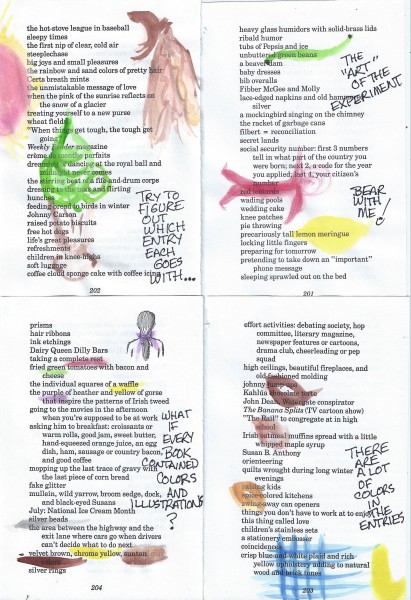 the hot-stove league in baseball
sleepy times
the first nip of clear, cold air
steeplechase
big joys and small pleasures
the rainbow and sand colors of pretty hair
Certs breath mints
the unmistakable message of love
when the pink of the sunrise reflects on
the snow of a glacier
treating yourself to a new purse
wheat fields
"When things get tough, the tough get
going"
Weekly Reader magazine
crème parfaits
dreaming dancing at the royal ball and
comes
the stirring beat of fife-and-drum corps
flirting
hunch
feeding bread to birds in winter
Johnny Carson
raised potato biscuits
free hot dogs
life's great pleasures
refreshments
children in knee-highs
soft luggage
coffee cloud sponge cake with coffee icing
202
TRY TO
FIGURE
OUT
WHICH
ENTRY
EACH
GOES
WITH...
heavy glass humidors with solid-brass lids
ribald humor
tubs of Pepsis and ice
unbuttered green beans
a beaver dam
baby dresses
bib overalls
Fibber McGee and Molly
lace-edged napkins and old hammered
silver
a mockingbird singing on the chimney
the racket of garbage cans
filbert = reconciliation
secret lands
social security number: first 3 numbers
tell in what part of the country you
were born; next 2, a code for the year
you applied; last 4, your citizen's
number
red leotards
wading pools
wedding cake
knee patches
pie throwing
precariously tall lemon meringue
locking little fingers
preparing for tomorrow
pretending to take down an "important"
phone message
sleeping sprawled out on the bed
201
THE
"ART"
OF THE
EXPERIMENT
BEAR
WITH
ME!
prisms
hair ribbons
ink etchings
Dairy Queen Dilly Bars
taking a complete rest
fried green tomatoes with bacon and
cheese
the individual squares of a waffle
the purple of heather and yellow of gorse
that inspire the patterns of Irish tweed
going to the movies in the afternoon
when you're supposed to be at work
asking him to breakfast: croissants or
warm rolls, good jam, sweet butter,
hand-squeezed orange juice, an egg
dish, ham, sausage or country bacon,
and good coffee
mopping up the last trace of gravy with
the last piece of corn bread
fake glitter
mullein, wild yarrow, broom sedge, dock,
and black-eyed Susans
July: National Ice Cream Month
silver beads
the area between the highway and the
exit lane where cars go when drivers
can't decide what to do next
velvet brown, chrome yellow, suntan
silver rings
204
WHAT
IF
EVERY
BOOK
CONTAINED
COLORS
AND
ILLUSTRATIONS
?
effort activities: debating society, hop
committee, literary magazine,
newspaper features or cartoons,
drama club, cheerleading or pep
squad
high ceilings, beautiful fireplaces, and
old-fashioned molding
johnny
Kahlúa chocolate torte
John Dean, Watergate conspirator
The Banana Splits (TV cartoon show)
"The Rail" to congregate at in high
school
Irish oatmeal muffins spread with a little
whipped maple syrup
Susan B. Anthony
orienteering
quilts wrought during long winter
evenings
raising kids
spice-colored kitchens
swing-away can openers
things you don't have to work at to enjoy
this thing called love
children's stainless sets
a stationery embosser
coincidence
crisp blue-and-white plaid and rich
yellow upholstery adding to natural
wood and brick tones
203
THERE
ARE
A LOT
OF
COLORS
IN THE
ENTRIES